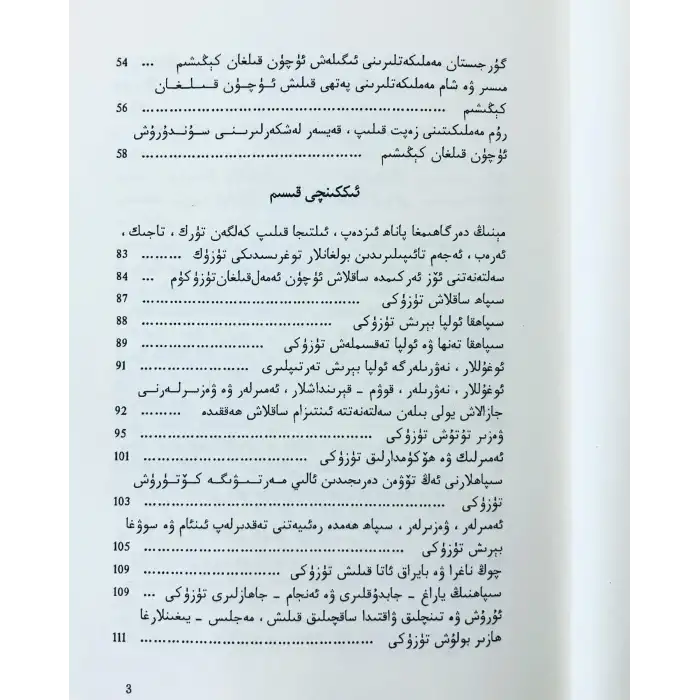 گۈرجىستان مەملىكەتلىرىنى ئىگىلەش ئۈچۈن قىلغان كېڭىشىم ... 54
مىسىر ۋە شام مەملىكەتلىرىنى پەتھى قىلىش ئۈچۈن قىلغان
كېڭىشىم ........................................ 56
رۇم مەملىكىتىنى زەپت قىلىپ ، قەيسەر لەشكەرلىرىنى سۇندۇرۇش
ئۈچۈن قىلغان كېڭىشىم ............................ 58
ئىككىنچى قىسىم
مېنىڭ دەرگاھىمغا پاناھ ئىزدەپ ، ئىلتىجا قىلىپ كەلگەن تۈرك ، تاجىك ،
ئەرەب ، ئەجەم تائىپىلىرىدىن بولغانلار توغرىسىدىكى تۈزۈك ......... 83
سەلتەنەتنى ئۆز ئەركىمدە ساقلاش ئۈچۈن ئەمەل قىلغان تۈزۈكۈم ... 84
سىپاھ ساقلاش تۈزۈكى ............................ 87
سىپاھقا ئولپا بېرىش تۈزۈكى ........................ 88
سىپاھقا تەنھا ۋە ئولپا تەقسىملەش تۈزۈكى ............... 89
ئوغۇللار ، نەۋرىلەرگە ئولپا بېرىش تەرتىپلىرى ............... 91
ئوغۇللار ، نەۋرىلەر ، قوۋم - قېرىنداشلار ، ئەمىرلەر ۋە ۋەزىرلەرنى
جازالاش يولى بىلەن سەلتەنەتتە ئىنتىزام ساقلاش ھەققىدە ......... 92
ۋەزىر تۇتۇش تۈزۈكى ............................ 95
ئەمىرلىك ۋە ھۆكۈمدارلىق تۈزۈكى .................... 101
سىپاھلارنى ئەڭ تۆۋەن دەرىجىدىن ئالىي مەرتىۋىگە كۆتۈرۈش
تۈزۈكى ........................................ 103
ئەمىرلەر ، ۋەزىرلەر ، سىپاھ ھەمدە رەئىيەتنى تەقدىرلەپ ئىنئام ۋە سوۋغا
بېرىش تۈزۈكى .................................... 105
چوڭ ناغرا ۋە بايراق ئاتا قىلىش تۈزۈكى .................... 109
سىپاھنىڭ ياراغ - جابدۇقلىرى ۋە ئەنجام - جاھازلىرى تۈزۈكى ... 109
ئۇرۇش ۋە تىنچلىق ۋاقتىدا ساقچىلىق قىلىش ، مەجلىس - يىغىنلارغا
ھازىر بولۇش تۈزۈكى ............................ 111
3